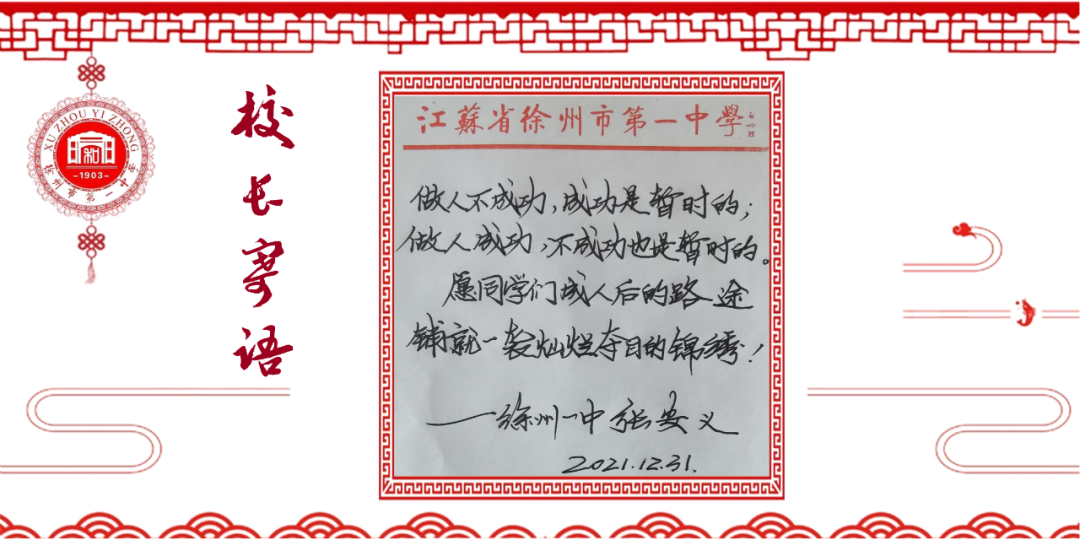 XU ZHOU YI ZHONG
1903
徐州市第一中学
校长寄语
江蘇省徐州市第一中學
做人不成功,成功是暂时的;
做人成功,不成功也是暂时的。
愿同学们成人后的路途
铺就一袭灿烂夺目的锦绣!
——徐州一中 张安义
2021.12.31.